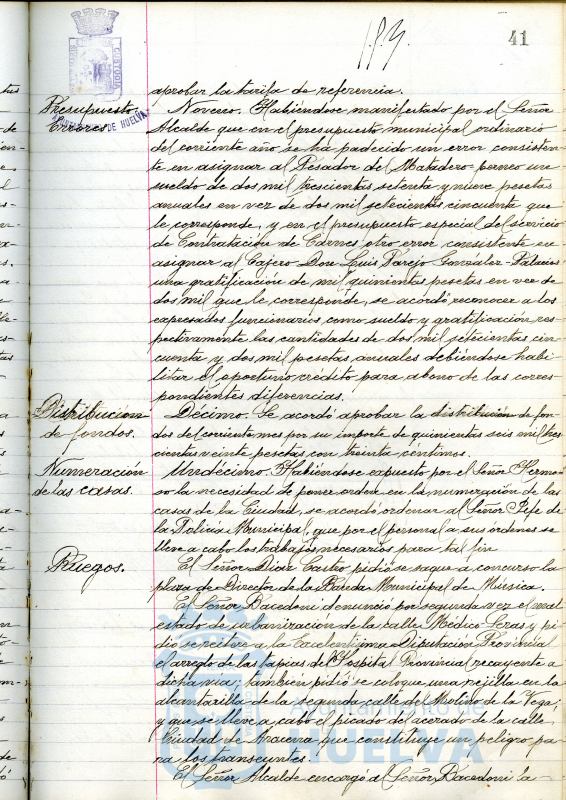 41
aprobar la tarifa de referencia.
Presupuesto.
Errores.
Noveno. Habiéndose manifestado por el Señor
Alcalde que en el presupuesto municipal ordinario
del corriente año se ha padecido un error consisten-
te en asignar al Pesador del Matadero perneo un
sueldo de dos mil trescientas setenta y nueve pesetas
anuales en vez de dos mil setecientas cincuenta que
le corresponde, y en el presupuesto especial del servicio
de Contratación de Carnes otro error consistente en
asignar al Cajero Don Luis Parejo González-Palacios
una gratificación de mil quinientas pesetas en vez de
dos mil que le corresponde, se acordó reconocer a los
expresados funcionarios como sueldo y gratificación res-
pectivamente las cantidades de dos mil setecientas cin-
cuenta y dos mil pesetas anuales debiéndose habi-
litar el oportuno crédito para abono de las corres-
pondientes diferencias.
Distribución
de fondos.
Décimo. Se acordó aprobar la distribución de fon-
dos del corriente mes por su importe de quinientas seis mil tres
cientas veinte pesetas con treinta céntimos.
Numeración
de las casas.
Undécimo. Habiéndose expuesto por el Señor Hermo
so la necesidad de poner orden en la numeración de las
casas de la Ciudad, se acordó ordenar al Señor Jefe de
la Policía Municipal, que por el personal a sus órdenes se
lleve a cabo los trabajos necesarios para tal fin
Ruegos.
El Señor Díaz Castro pidió se saque a concurso la
plaza de Director de la Banda Municipal de Música.
El Señor Bacedoni denunció por segunda vez el mal
estado de urbanización de la calle Médico Seras y pi-
dió se reitere a la Excelentísima Diputación Provincial
el arreglo de las tapias del Hospital Provincial recayente a
dicha vía; también pidió se coloque una rejilla en la
alcantarilla de la segunda calle del Molino de la Vega;
y que se lleve a cabo el picado del acerado de la calle
Ciudad de Aracena que constituye un peligro pa-
ra los transeuntes.
El Señor Alcalde encargó al Señor Bacedoni la-
AYUNTAMIENTO DE HUELVA
Ayuntamiento de
HUELVA